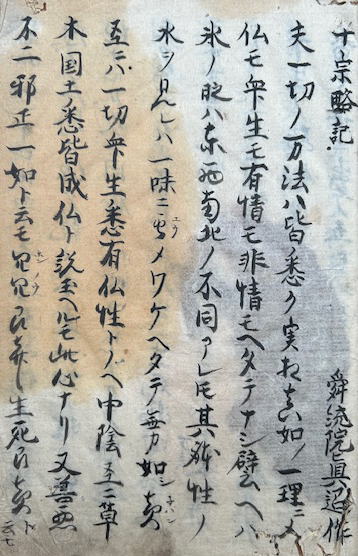 十宗略記
舜統院真迢作
夫一切ノ万法ハ皆悉ク実相真如ノ一理ニメ
仏モ衆生モ有情モ非情モヘタテナシ譬ヘハ
氷ノ時ハ東西南北ノ不同アレトモ其破性ノ
水ヲ見レハ一味ニ乄メワケヘタテ無カ如シ
至ニハ一切衆生悉有仏性トノヘ中陰至ニ草
木国土ノ悉皆成仏ト説玉ヘルモ此心ナリ又善悪
不二邪正一如ト云モ 生死 ト